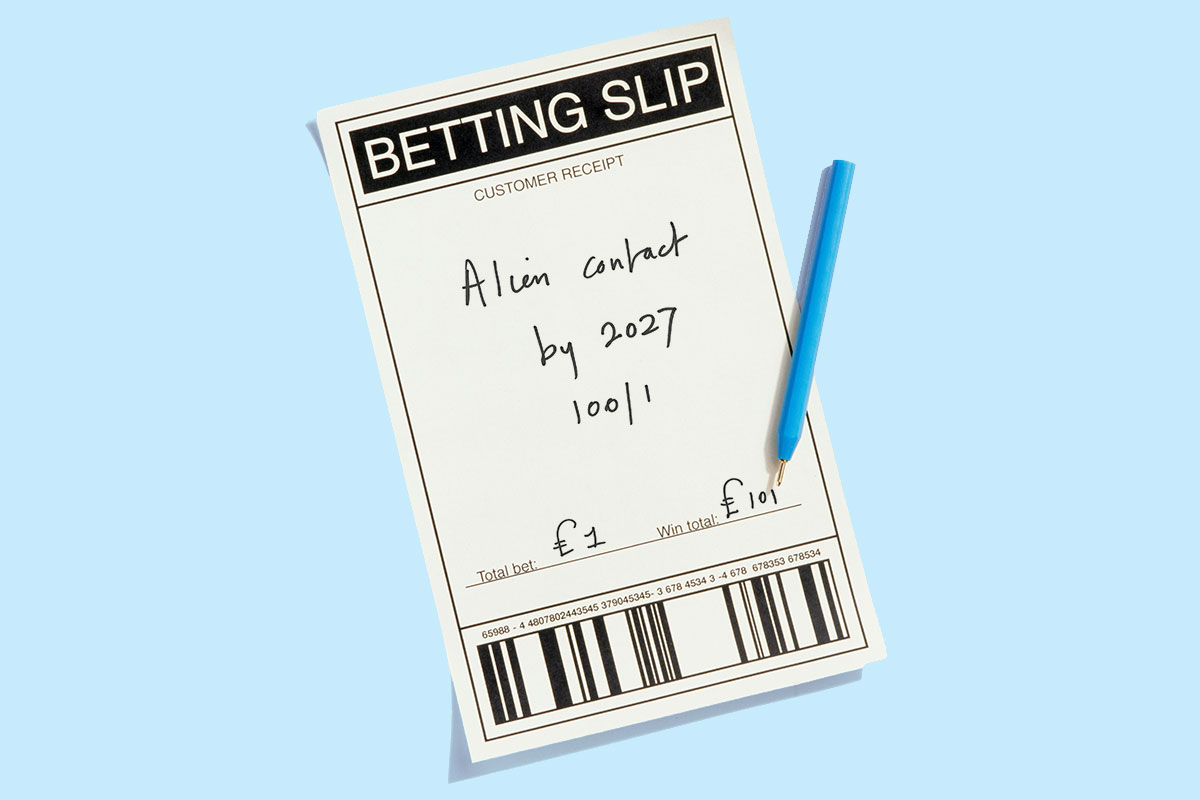 BETTING SLIP
CUSTOMER RECEIPT
Alien contact
by 2027
100/1
Total bet: £1 Win total: £101
65988 - 4 4807802443545 379045345- 3 678 4534 3 -4 678 678353 678534